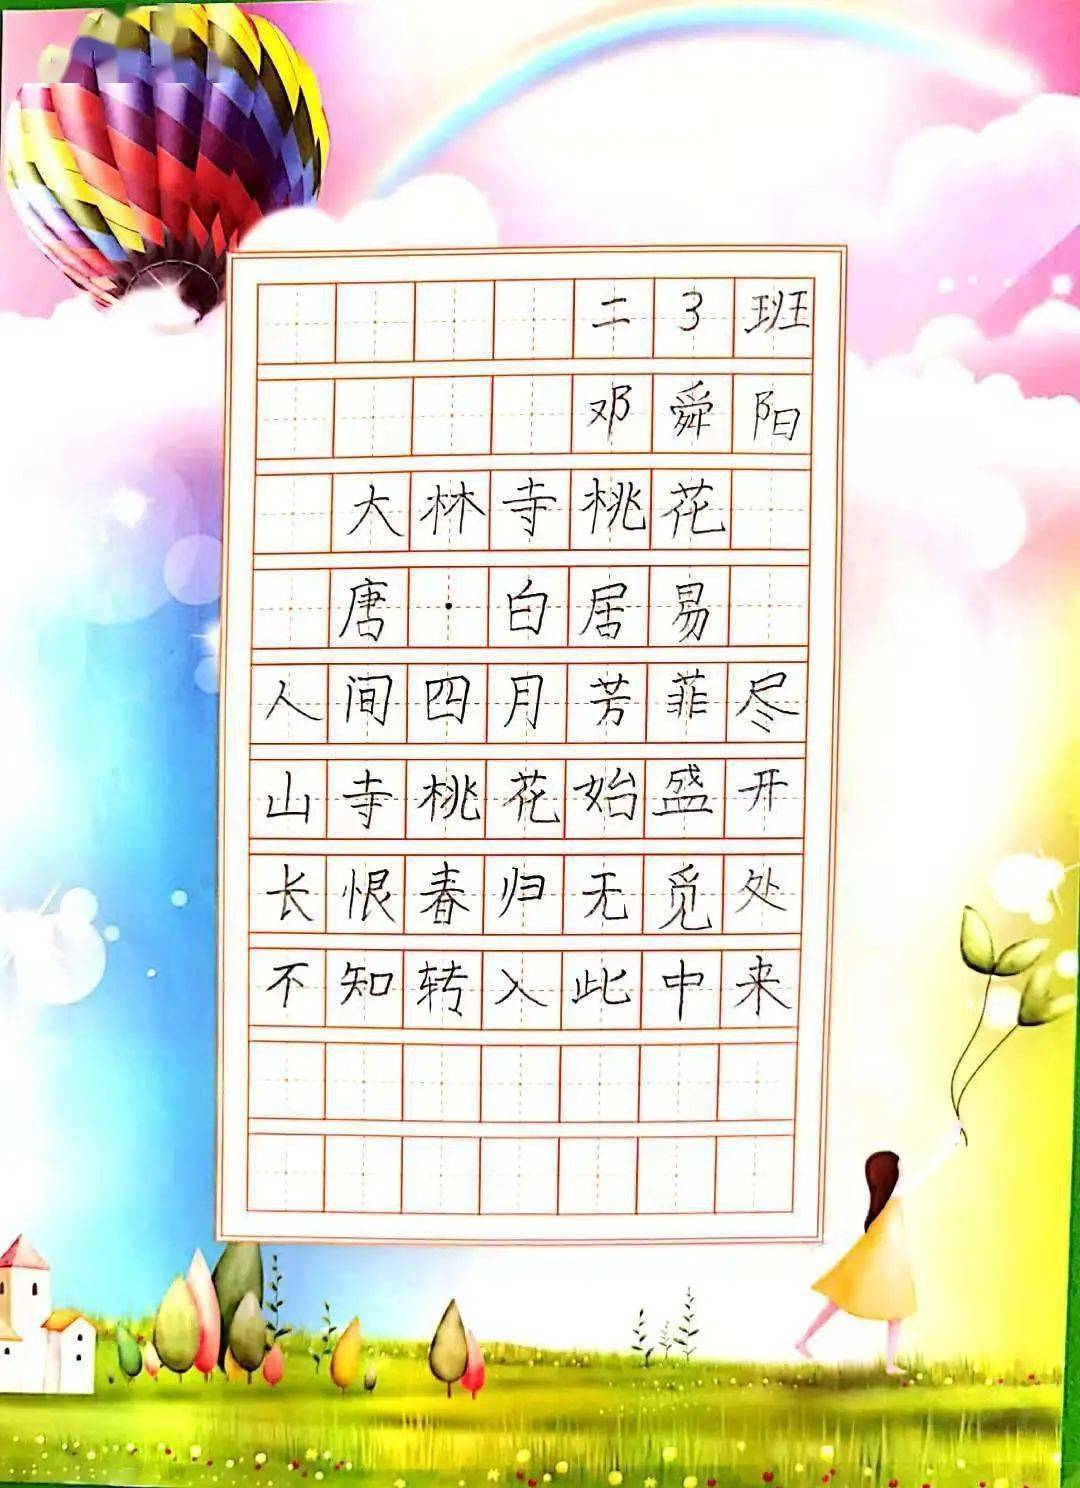 二3班
邓舜阳
大林寺桃花
唐·白居易
人间四月芳菲尽
山寺桃花始盛开
长恨春归无觅处
不知转入此中来